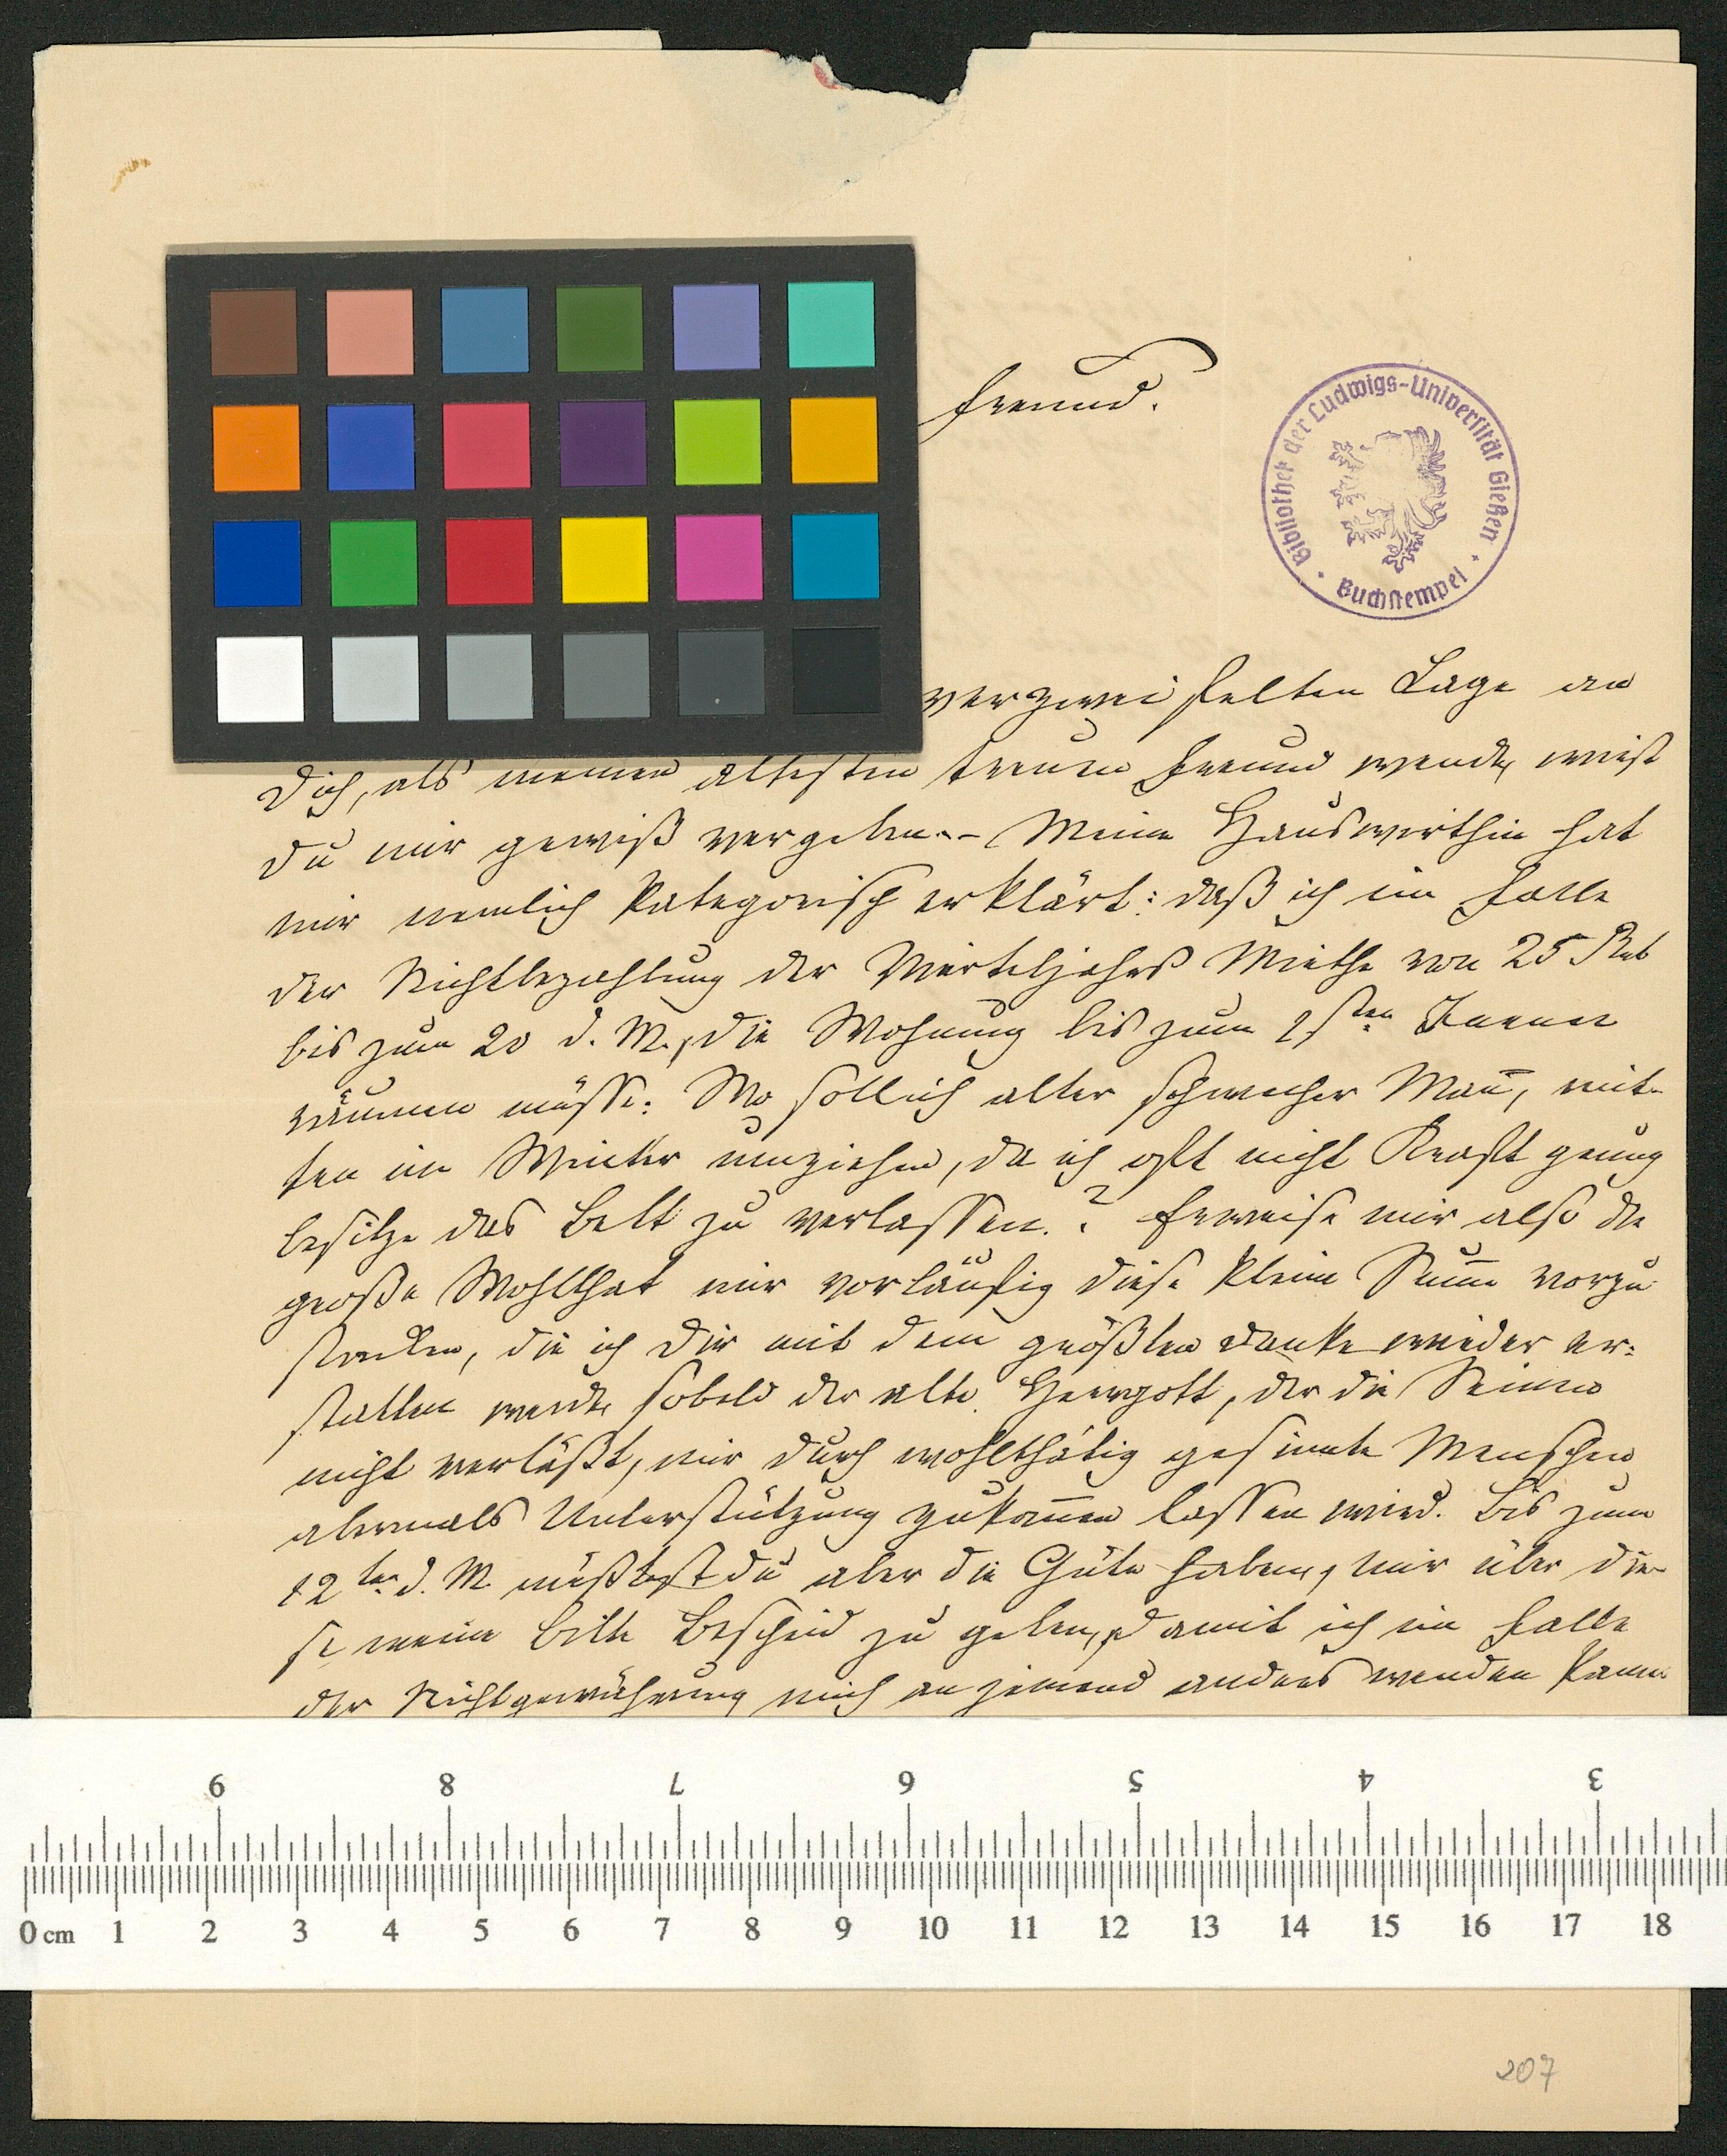 Freund.
Bibliothek der Ludwigs-Universität Gießen
Buchstempel
verzweifelten Lage an
Dich, als meinen ältesten treuen Freund wende, wirst
Du mir gewiß vergeben.– Meine Hauswirthin hat
mir nemlich kategorisch erklärt: daß ich im Falle
der Nichtbezahlung der Vierteljahrs Miethe von 25 Rub
bis zum 20 d. M., die Wohnung bis zum 1sten
räumen müsse. Wo soll ich alter schwacher Man̄, mit-
ten im Winter umziehen, da ich oft nicht Kraft genug
besitze das Bett zu verlassen.? Erweise mir also die
große Wohlthat mir vorläufig diese kleine Sum̄e vorzu
strecken, die ich Dir mit dem größten Danke wieder er:
statten werde, sobald der alte Herrgott, der die Seinen
nicht verläßt, mir durch wohlthätig gesinnte Menschen
abermals Unterstützung zukom̄en lassen wird. Bis zum
12ten d. M. müßtest Du aber die Güte haben, mir über die-
se meine Bitte Bescheid zu geben, damit ich im Falle
der Nichtgewährung mich an jemand anders wenden kann
9 8 7 6 5 4 3
0 cm 1 2 3 4 5 6 7 8 9 10 11 12 13 14 15 16 17 18
207